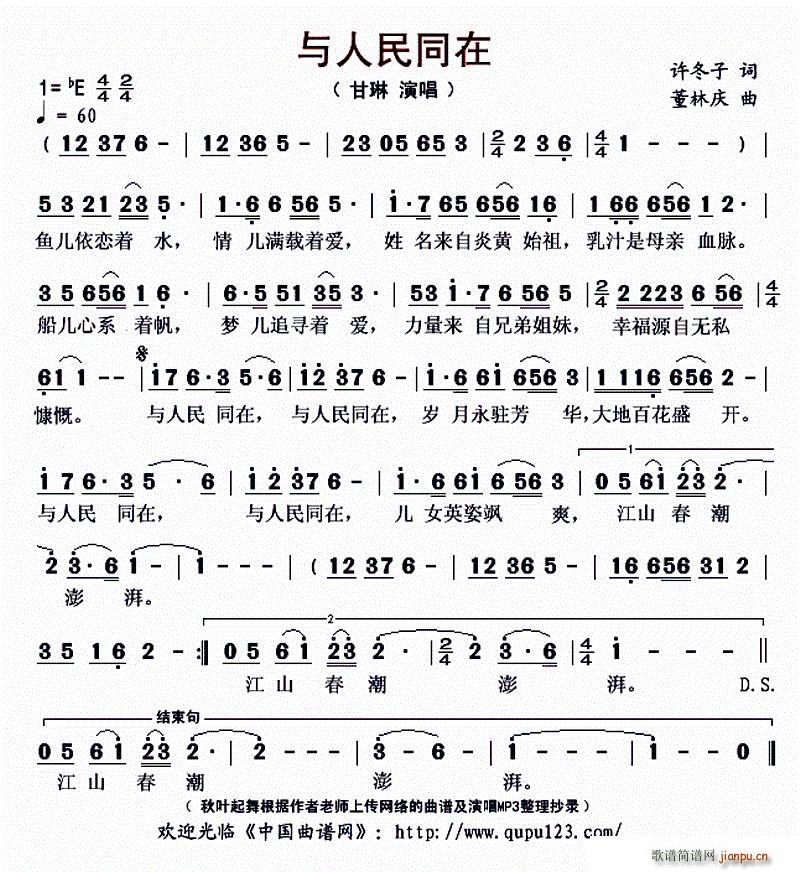 与人民同在
1=♭E 4/4 2/4
（甘琳 演唱）
许冬子 词
♩= 60
董林庆 曲
( 12 37 6 - | 12 36 5 - | 23 05 65 3 | 2/4 2 36 | 4/4 1 - - - ) |
53 21 23 5· | 1·6 6 56 5· | 1·7 65 656 16· | 1 66 656 12· |
鱼儿依恋着 水， 情 儿满载着爱， 姓 名来自炎黄 始祖，乳汁是母亲 血脉。
35 656 16· | 6·5 21 35 3· | 53 1·76 56 5· | 4/4 2 223 6 56 | 4/4
船儿心系 着帆， 梦 儿追寻着 爱， 力量来 自兄弟姐妹， 幸福源自无私
61 1 - - | 17 6·3 5·6 | 12 37 6 - | 1·6 61 656 3 | 1 116 656 2 - |
慷慨。 与人民 同在， 与人民同在， 岁 月永驻芳 华，大地百花盛 开。
1
17 6·3 5·6 | 12 37 6 - | 1·6 61 656 3 | 05 61 23 2· |
与人民 同在， 与人民同在， 儿 女英姿飒 爽， 江山 春潮
2 3·6 1 - | 1 - - - | ( 12 37 6 - | 12 36 5 - | 16 656 31 2 |
澎 湃。
2
35 16 2 - :‖ 05 61 23 2· | 2/4 2 3·6 | 4/4 1 - - - ‖
江山 春潮 澎 湃。 D.S.
结束句
05 61 23 2· | 2 - - - | 3· 6· | 1 - - - | 1 - - 0 ‖
江山 春潮 澎 湃。
（ 秋叶起舞根据作者老师上传网络的曲谱及演唱MP3整理抄录）
欢迎光临《中国曲谱网》：http://www.qupu123.com/
歌谱简谱网 jianpu.cn